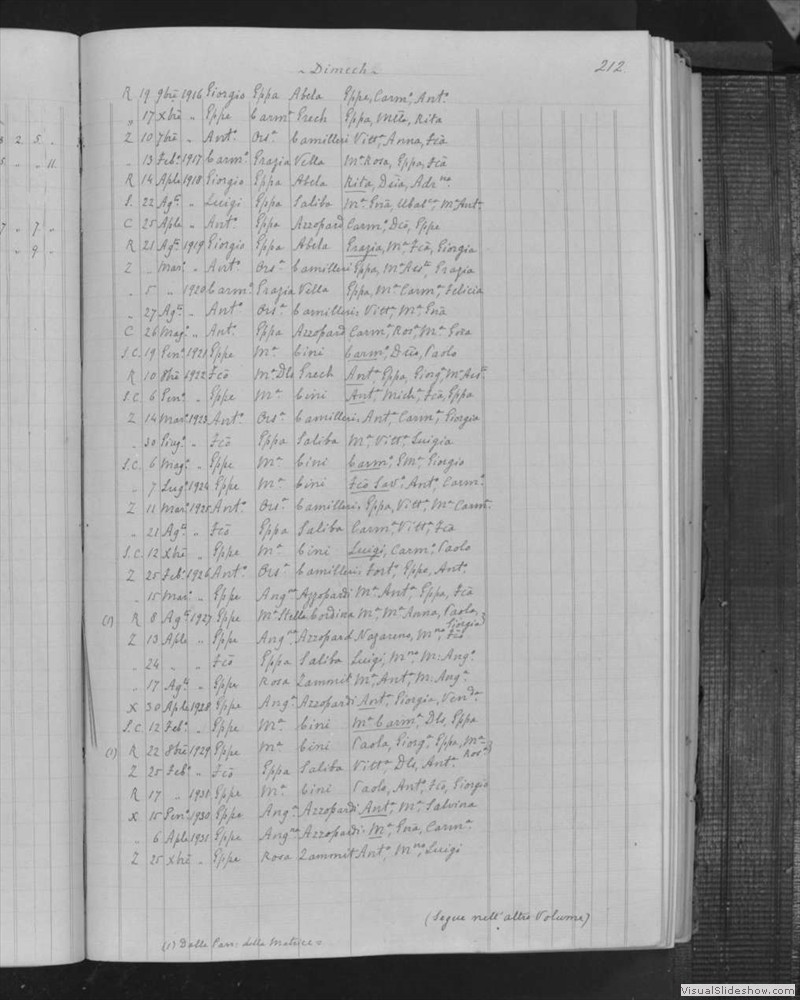 - Dimech -
212
R 19 9bre 1916 Giorgio Eppa Abela Eppa, Carm.a Ant.a
" 17 Xbre " Eppe Carm.a Grech Eppa, Rita
Z 10 7bre " Ant.o Ors.a Camilleri Vitt.a Anna, Fca
" 13 Feb.o 1917 Carm.o Grazia Vella M.a Rosa, Eppa, Fca
R 14 Aple 1918 Giorgio Eppa Abela Rita,
S. 22 Ag.to " Luigi Eppa Saliba M.a
C 25 Aple " Ant.o Eppa Azzopardi Carm.o Eppe
R 21 Ag.to 1919 Giorgio Eppa Abela Grazia, M.a Fca, Giorgia
Z " Mar.o " Ant.o Ors.a Camilleri Eppa, M.a Grazia
" 5 " 1920 Carm.o Grazia Vella Eppa, M.a Carm.a Felicia
" 27 Ag.to " Ant.o Ors.a Camilleri Vitt.a M.a
C 26 Mag.o " Ant. Eppa Azzopardi Carm.a Ros.a M.a
S.C. 19 Gen.o 1921 Eppe M.a Cini Carm.o Paolo
R 10 8bre 1922 Fco M.a Dls Grech Ant.a Eppa, Giorg.a
S.C. 6 Gen.o " Eppe M.a Cini Ant.o Mich.e Fco, Eppa
Z 14 Mar.o 1923 Ant.o Ors.a Camilleri Ant.a Carm.a Giorgia
" 30 Giug.o " Fco Eppa Saliba M.a Vitt.a Luigia
S.C. 6 Mag.o " Eppe M.a Cini Carm.o Giorgio
" 7 Lug.o 1924 Eppe M.a Cini Fco Sav.o Ant.o Carm.o
Z 11 Mar.o 1925 Ant.o Ors.a Camilleri Eppa, Vitt.a M.a Carm.a
" 21 Ag.to " Fco Eppa Saliba Carm.a Vitt.a Fca
S.C. 12 Xbre " Eppe M.a Cini Luigi, Carm.o Paolo
Z 25 Feb.o 1926 Ant.o Ors.a Camilleri Fort.o Eppe, Ant.o
" 15 Mar.o " Eppe Ang.na Azzopardi M.a Ant.a Eppa, Fca
(1) R 8 Ag.to 1927 Eppe M.a Stella Cordina M.a M.a Anna, Paola, Giorgia
Z 13 Aple " Eppe Ang.na Azzopardi Nazareno, Fco
" 24 " " Fco Eppa Saliba Luigi, Ang.o
" 17 Ag.to " Eppe Rosa Zammit M.a Ant.a Ang.a
X 30 Aple 1928 Eppe Ang.a Azzopardi Ant.a Giorgia,
S.C. 12 Feb.o " Eppe M.a Cini M.a Carm.a Dls, Eppa
(1) R 22 8bre 1929 Eppe M.a Cini Paola, Giorg.a Eppa, M.a Ros.a
Z 25 Feb.o " Fco Eppa Saliba Vitt.a Dls, Ant.a
R 17 " 1931 Eppe M.a Cini Paolo, Ant.o Fco, Giorgio
X 15 Gen.o 1930 Eppe Ang.a Azzopardi Ant.a M.a Salvina
" 6 Aple 1931 Eppe Ang.na Azzopardi M.a Carm.a
Z 25 Xbre " Eppe Rosa Zammit Ant.o Luigi
(Segue nell'altro Volume)
(1) Dalla Parr: della Matrice
VisualSlideshow.com